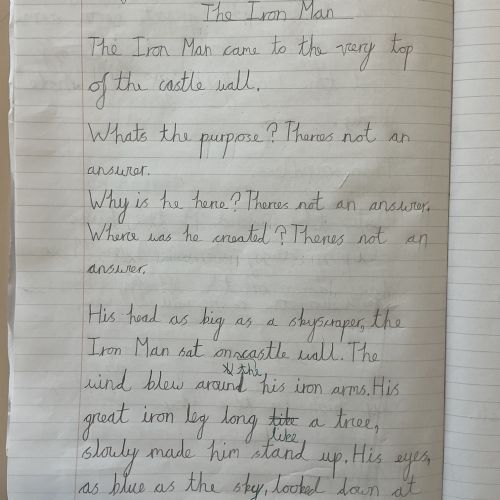 The Iron Man
The Iron Man came to the very top
of the castle wall.
Whats the purpose? Theres not an
answer.
Why is he here? Theres not an answer.
Where was he created? Theres not an
answer.
His head as big as a skyscraper, the
Iron Man sat on castle wall. The
the
wind blew around his iron arms. His
great iron leg long tike a tree,
like
slowly made him stand up. His eyes,
as blue as the sky, looked down at